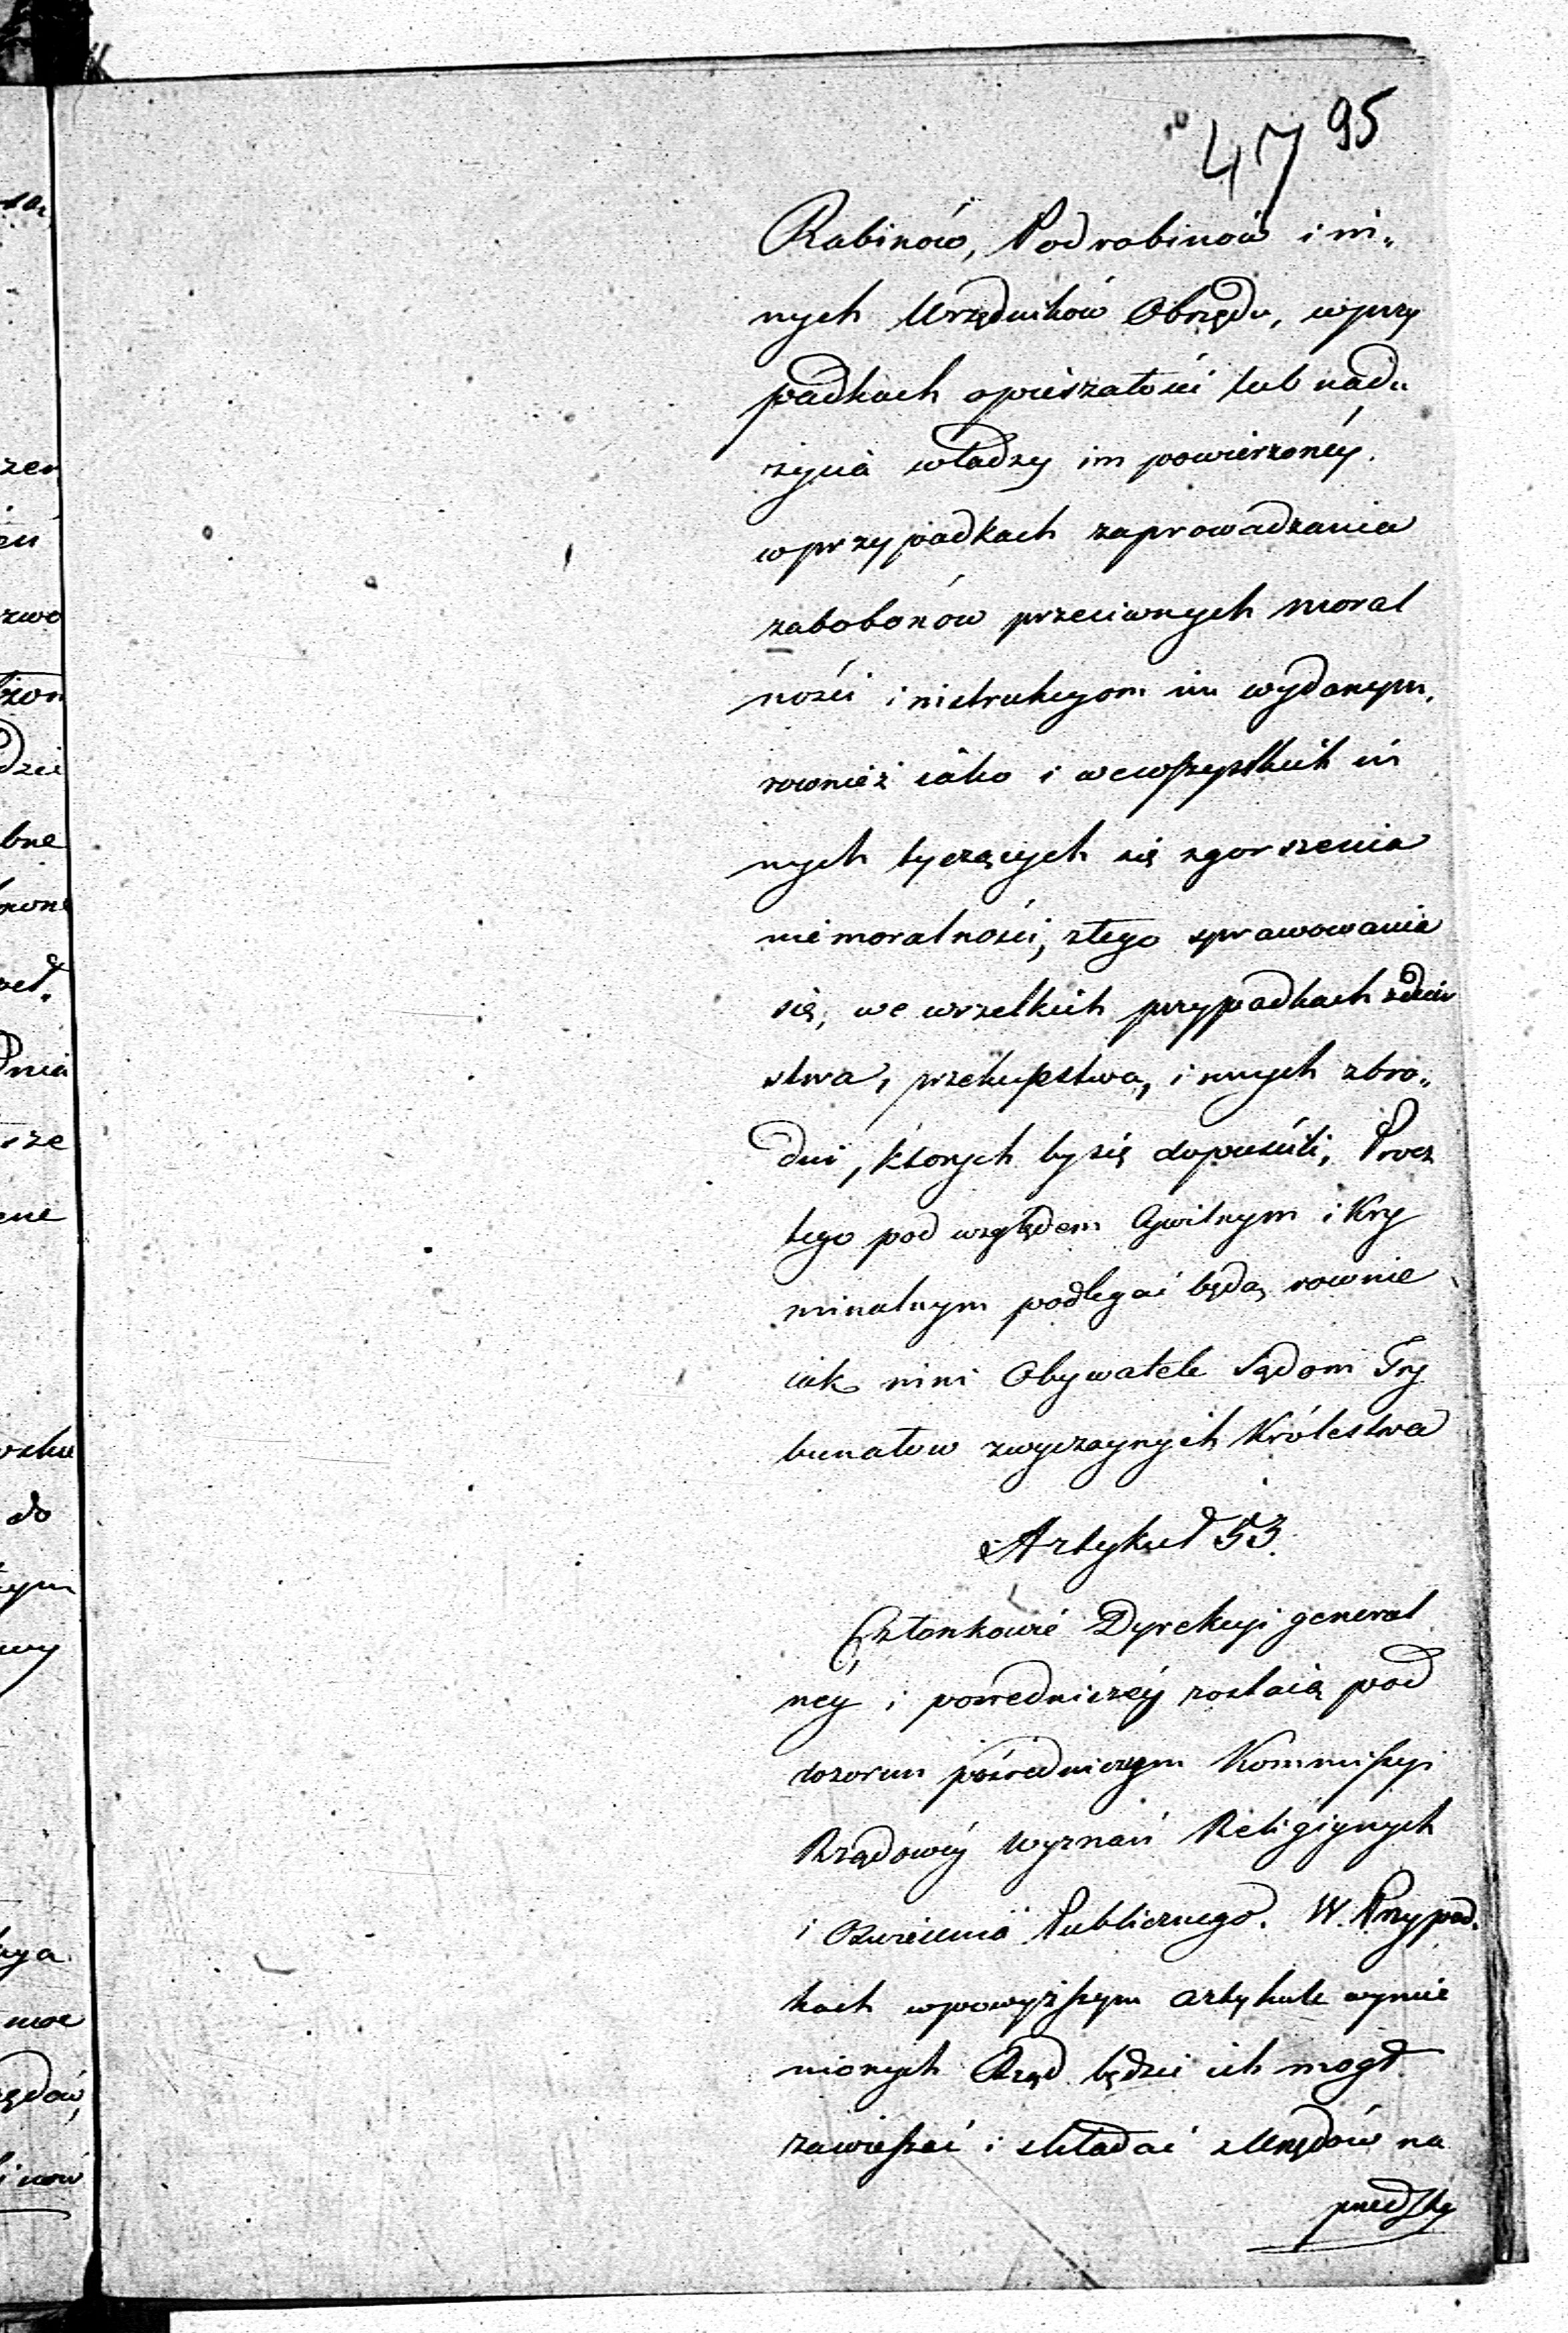 47 95
Rabinów, Podrabinów i in„
nych Urzędników Obrzędu, w przy
padkach opieszałości lub nadu
życia władzy im powierzonéy.
w przypadkach zaprowadzania
zabobonów przeciwnych moral
ności i instrukcyom im wydanym,
rownież iako i we wszystkich in
nych tyczących się zgorszenia
niemoralności, złego sprawowania
się, we wszelkich przypadkach zdzier
stwa, przekupstwa, innych zbro„
dni, ktorych by się dopuścili, Procz
tego pod względem Cywilnym i Kry
minalnym podlegać będą rownie
iak inni Obywatele Sądom Try
bunałow zwyczaynych Królestwa
Artykuł 53.
Członkowie Dyrekcyi general
ney i pośredniczéy zostaią pod
dozorem pośredniczym Kommissyi
Rządowéy Wyznań Religiynych
i Oswiecenia Publicznego. W Przypad„
kach w powyższym artykule wymie
nionych Rząd będzie ich mogł
zawieszać i składać z Urzędów na
przedsta